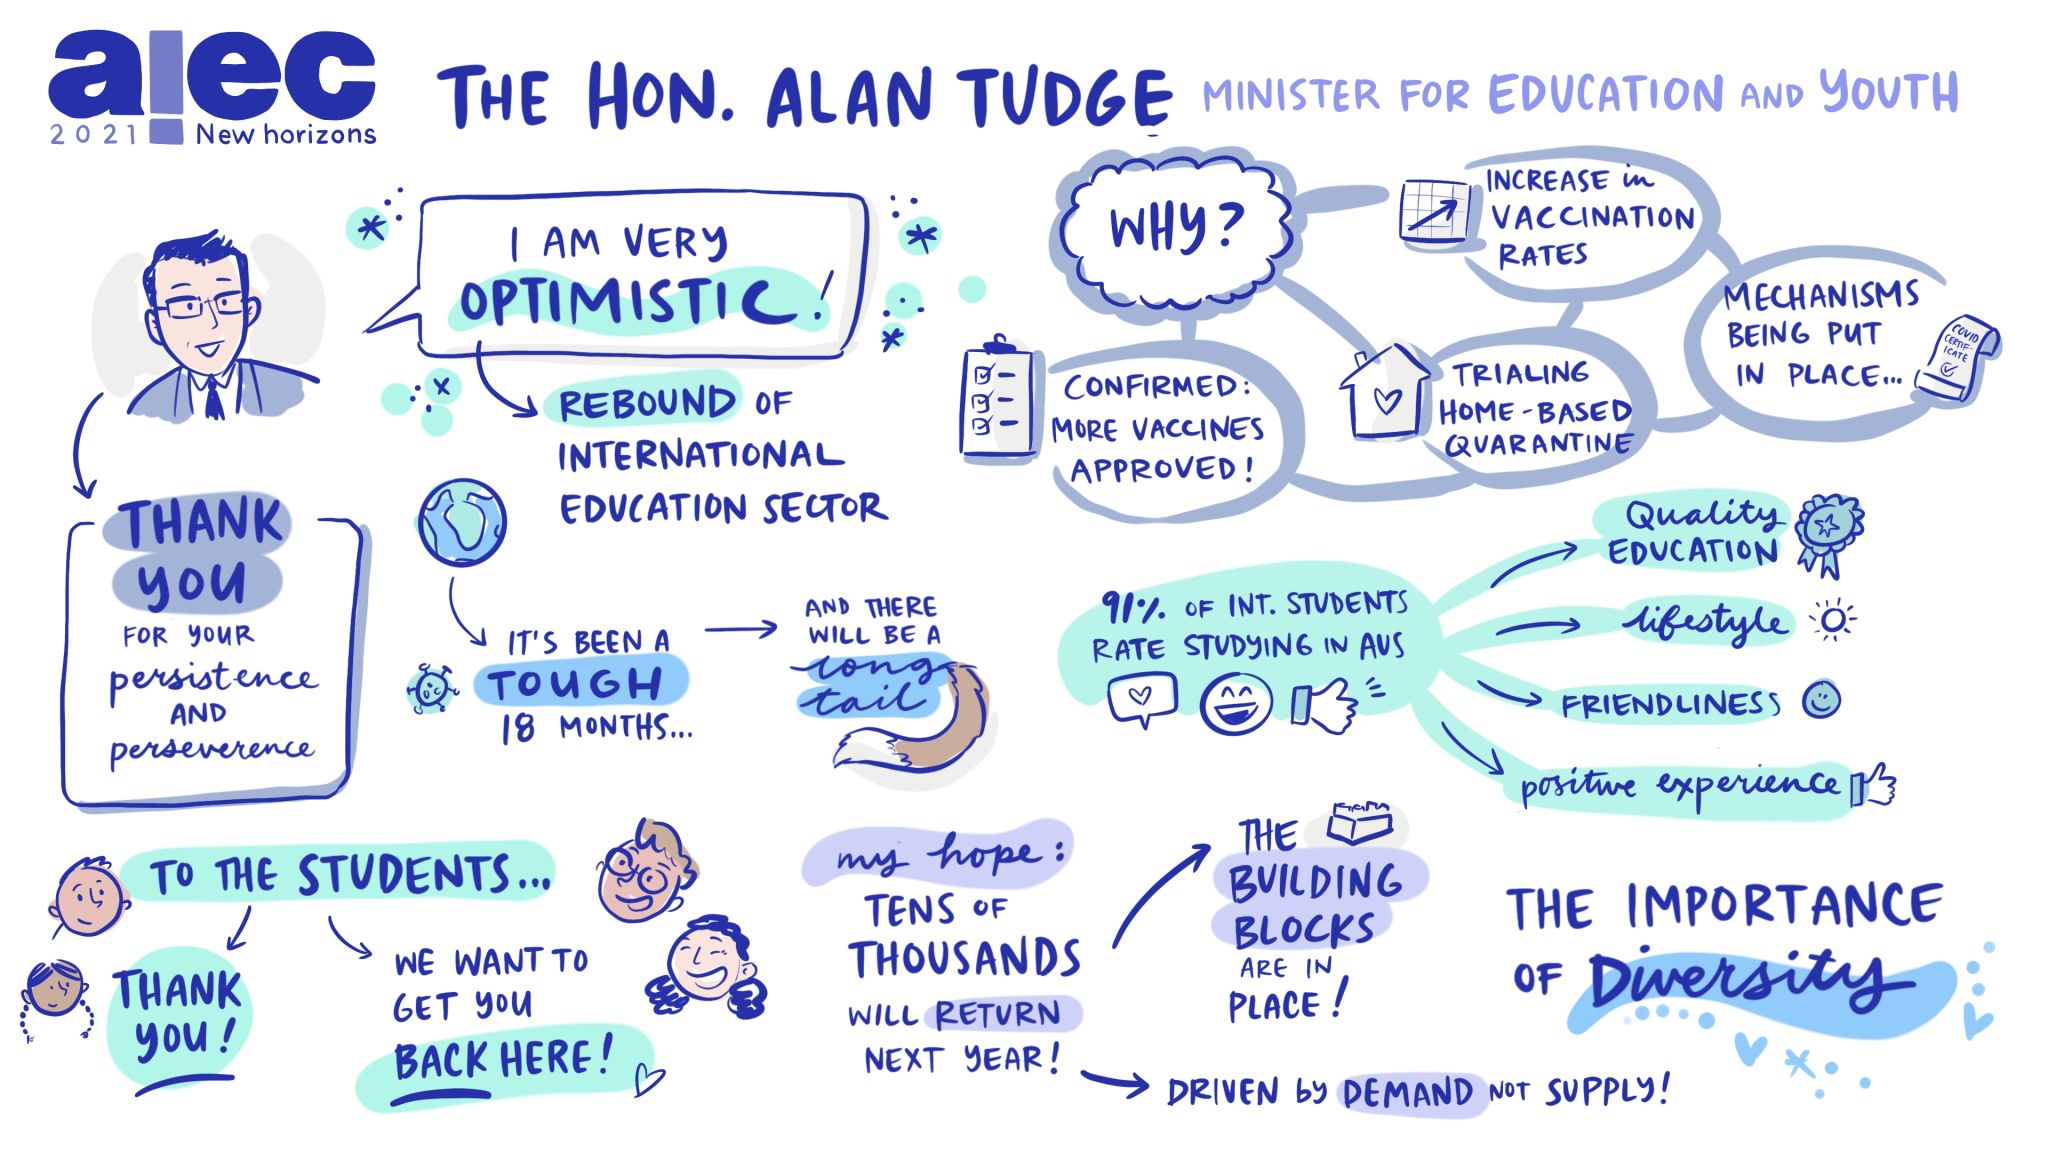 a!ec
2021 New horizons
THE HON. ALAN TUDGE
MINISTER FOR EDUCATION AND YOUTH
I AM VERY
OPTIMISTIC!
REBOUND OF
INTERNATIONAL
EDUCATION SECTOR
THANK
YOU
FOR YOUR
persistence
AND
perseverence
IT'S BEEN A
TOUGH
18 MONTHS...
AND THERE
WILL BE A
long
tail
WHY?
INCREASE in
VACCINATION
RATES
MECHANISMS
BEING PUT
IN PLACE...
COVID
CERTIF-
ICATE
CONFIRMED:
MORE VACCINES
APPROVED!
TRIALING
HOME-BASED
QUARANTINE
91% OF INT. STUDENTS
RATE STUDYING IN AUS
Quality
EDUCATION
lifestyle
FRIENDLINESS
positive experience
TO THE STUDENTS...
THANK
YOU!
WE WANT TO
GET YOU
BACK HERE!
my hope:
TENS OF
THOUSANDS
WILL RETURN
NEXT YEAR!
THE
BUILDING
BLOCKS
ARE IN
PLACE!
DRIVEN by DEMAND NOT SUPPLY!
THE IMPORTANCE
OF Diversity